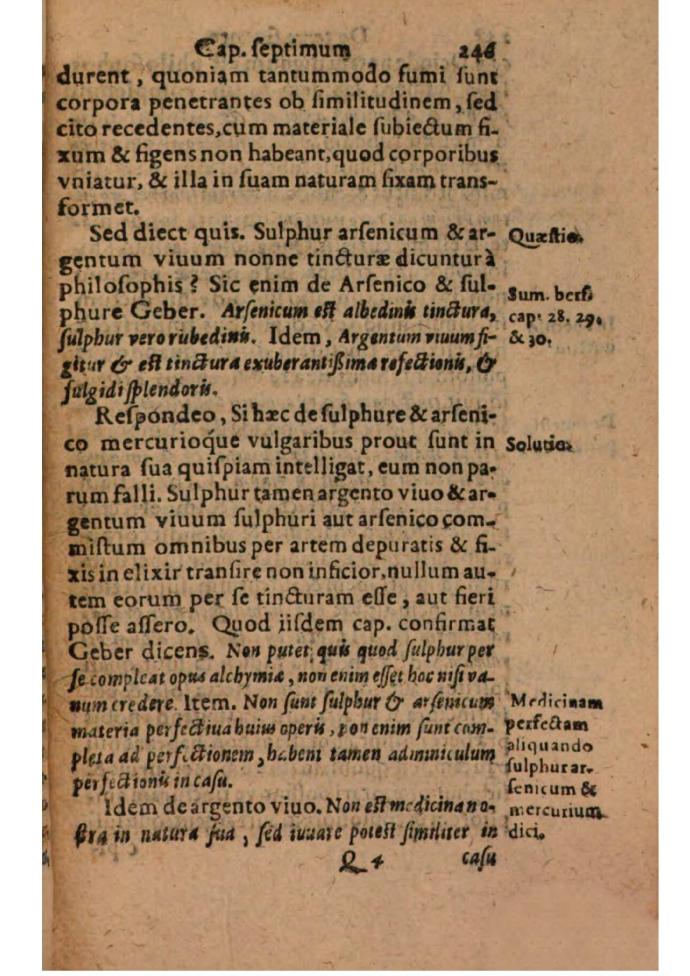 Cap. ſeptimum 246
durent, quoniam tantummodo fumi ſunt
corpora penetrantes ob ſimilitudinem, ſed
cito recedentes, cum materiale ſubiectum fi-
xum & figens non habeant, quod corporibus
vniatur, & illa in ſuam naturam fixam trans-
formet.
Sed diect quis. Sulphur arſenicum & ar-
Quæſtio.
gentum viuum nonne tincturæ dicuntur à
philoſophis? Sic enim de Arſenico & ſul-
phure Geber. Arſenicum eſt albedinis tinctura,
ſulphur vero rubedinis. Idem, Argentum viuum fi-
gitur & eſt tinctura exuberantißima refectionis, &
fulgidi ſplendoris.
Sum. berf.
cap. 28. 29.
& 30.
Reſpondeo, Si hæc de ſulphure & arſeni-
co mercurioque vulgaribus prout ſunt in
Solutio.
natura ſua quiſpiam intelligat, eum non pa-
rum falli. Sulphur tamen argento viuo & ar-
gentum viuum ſulphuri aut arſenico com-
miſtum omnibus per artem depuratis & fi-
xis in elixir tranſire non inficior, nullum au-
tem eorum per ſe tincturam eſſe, aut fieri
poſſe aſſero. Quod iiſdem cap. confirmat
Geber dicens. Non putet quis quod ſulphur per
ſe compleat opus alchymiæ, non enim eſſet hoc niſi va-
num credere. Item. Non ſunt ſulphur & arſenicum
materia perfectiua huius operis, non enim ſunt com-
pleta ad perfectionem, habent tamen adminiculum
perfectionis in caſu.
Medicinam
perfectam
aliquando
ſulphur ar-
ſenicum &
mercurium
dici.
Idem de argento viuo. Non eſt medicina no-
ſtra in natura ſua, ſed iuuare poteſt ſimiliter in
Q 4 caſu